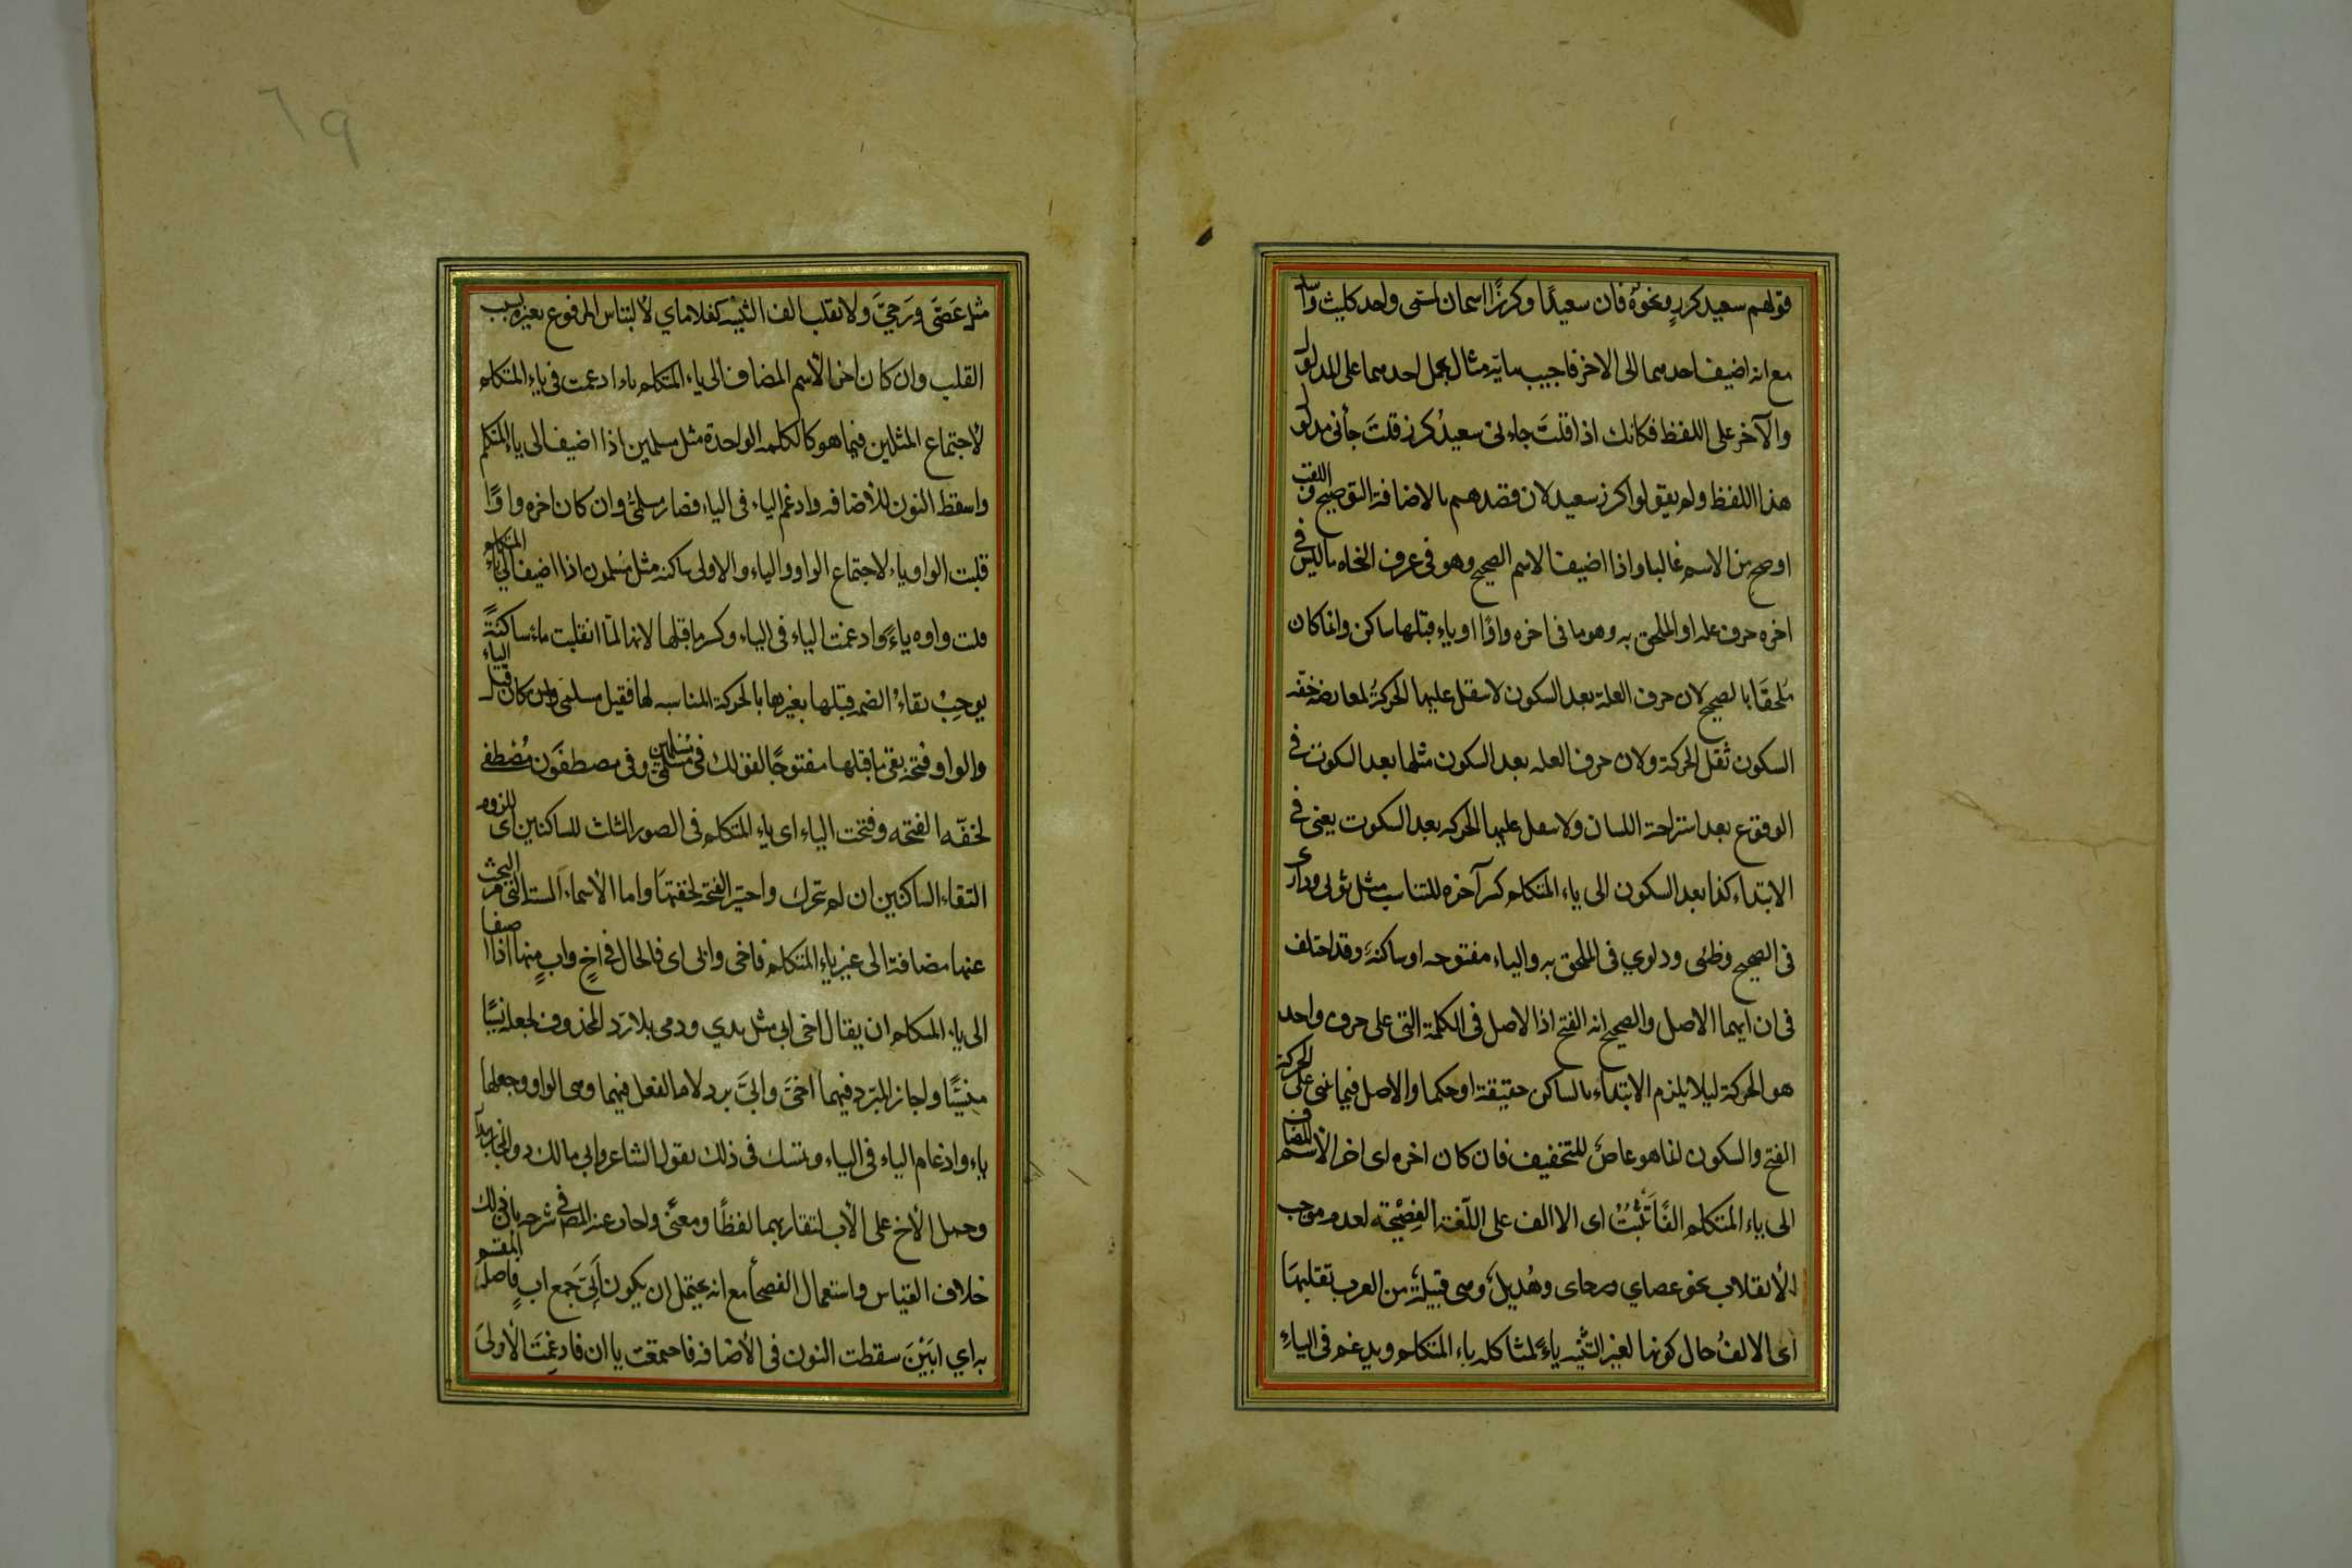 قولهم سعيد كرز ونحوه فان سعيدًا وكرزًا اسمان لمسمى واحد كليث واسد
مع انه اضيف احدهما الى الاخر فاجيب بانه متاول بحمل احدهما على المدلول
والآخر على اللفظ فكانك اذا قلتَ جاءنى سعيدُ كرز قلتَ جاءنى مدلول
هذا اللفظ ولم يقولوا كرز سعيد لان قصدهم بالاضافة التوضيح و اللقب
اوضح من الاسم غالبا واذا اضيف الاسم الصحيح وهو فى عرف النحاه ما ليس فى
اخره حرف عله او الملحق به وهو ما فى اخره واوًا او ياء قبلها ساكن وانما كان
مُلحقًا بالصحيح لان حرف العلة بعد السكون لا تثقل عليها الحركةُ لمعارضة خفة
السكون ثقل الحركة ولان حرف العله بعد السكون مثلها بعد السكوت فى
الوقوع بعد استراحة اللسان ولا تثقل عليها الحركه بعد السكوت يعنى فى
الابتداء كذا بعد السكون الى ياء المتكلم كسر آخره للتناسب مثل ثوبى ودارى
فى الصحيح وظبى ودلوي فى الملحق به والياء مفتوحه او ساكنة وقد اختلف
فى ان ايهما الاصل والصحيح انه الفتح اذا الاصل فى الكلمة التى على حرف واحد
هو الحركة ليلا يلزم الابتداء بالساكن حقيقة او حكما والاصل فيما بنى على الحركة
الفتح والسكون انما هو عارض للتخفيف فان كان اخره اى اخر الاسم المضاف
الى ياء المتكلم الفًا تَثْبُتُ اى الالف على اللّغة الفصيحة لعدم موجب
الانقلاب نحو عصاي ورحاى وهُذيل وهى قبيلة من العرب تقلبها
اى الالفُ حال كونها لغير التثنيه ياءً لمشاكله ياء المتكلم ويدغم فى الياءِ
مثل عَصَىَّ ورَحَىَّ ولا تقلب الف التثنيه كغلاماي لالتباس المرفوع بغيره بسبب
القلب وان كان اخر الأسم المضاف الى ياء المتكلم ياء ادغمت فى ياء المتكلم
لاجتماع المثلين فيما هو كالكلمه الواحدة مثل مسلمين اذا اضيف الى ياء المتكلم
واسقط النون للأضافه وادغم الياء فى الياء فصار مسلمىَّ وان كان اخره واوًا
قلبت الواو ياء لاجتماع الواو والياء والاولى ساكنه مثل مُسلمون اذا اضيف الى ياء المتكلم
قلبت واوه ياءً وادغمت الياء فى الياء وكسر ما قبلها لانها لمّا انقلبت ياء ساكنةً
يوجبُ بقاءُ الضم قبلها تغيرها بالحركة المناسبه لها فقيل مسلمى وان كان قبل الياء
والواو فتحه بقى ما قبلها مفتوحًا كقولك فى مُسلمين مسلمَىَّ وفى مصطفَون مُصْطفَى
لخفّه الفتحه وفتحت الياء اى ياء المتكلم فى الصور الثلث للساكنين اى للزوم
التقاء الساكنين ان لم تحرك واختير الفتحة لخفتها واما الأسماء الستة التى مر البحث
عنها مضافة الى غير ياء المتكلم فاخى وابى اى فالحال فى اخٍ وابٍ منها اذا اضيفا
الى ياء المتكلم ان يقال اخى ابى مثل يدي ودمى بلا رد المحذوف لجعله نسيًا
منسيًّا واجاز المبرّد فيهما اخىَّ وابىَّ برد لام الفعل فيهما وهى الواو وجعلها
ياء وادغام الياء فى الياء وتمسك فى ذلك بقول الشاعر وابي مالك ذو المجاز بدار
وحمل الأخ على الأب لتقاربهما لفظًا ومعنًى واجاب عنه المص فى شرحه بان ذلك
خلاف القياس واستعمال الفصحأ مع انه يحتمل ان يكون اَبىَّ جَمع ابٍ فاصله المقسم
به اي ابَيْنَ سقطت النون فى الأضافه فاجتمعت يا ان فادغمت الأولىَ